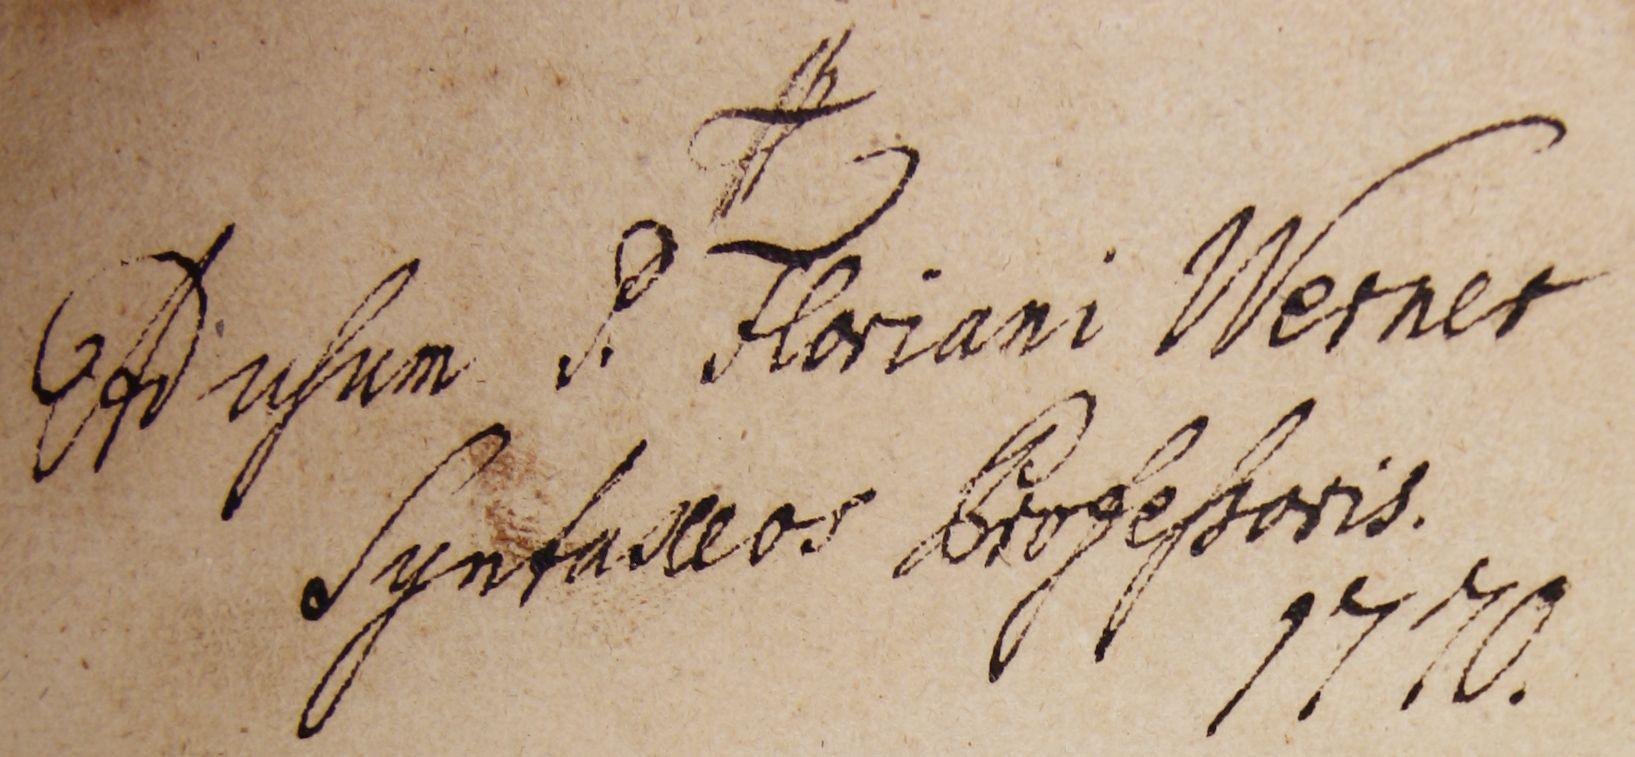 Ad usum P. Floriani Werner
Syntaxeos Professoris.
1770.